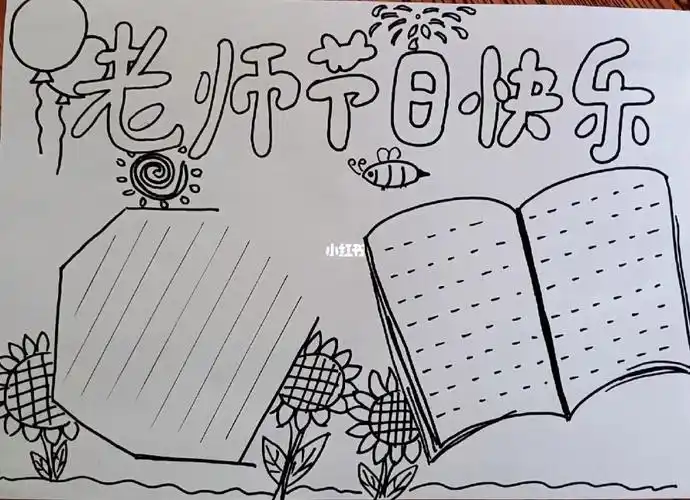 老师节日快乐
小红书